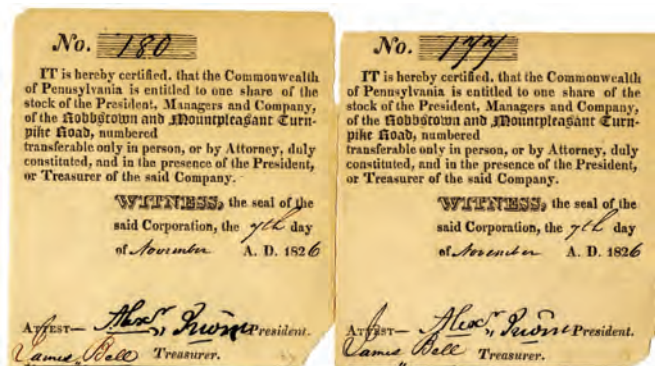 No. 180
IT is hereby certified, that the Commonwealth
of Pennsylvania is entitled to one share of the
stock of the President, Managers and Company,
of the Robbstown and Mountpleasant Turn-
pike Road, numbered
transferable only in person, or by Attorney, duly
constituted, and in the presence of the President,
or Treasurer of the said Company.
WITNESS, the seal of the
said Corporation, the 7th day
of November A. D. 1826
ATTEST— Alexr. President.
James Bell Treasurer.
No. 177
IT is hereby certified, that the Commonwealth
of Pennsylvania is entitled to one share of the
stock of the President, Managers and Company,
of the Robbstown and Mountpleasant Turn-
pike Road, numbered
transferable only in person, or by Attorney, duly
constituted, and in the presence of the President,
or Treasurer of the said Company.
WITNESS, the seal of the
said Corporation, the 7th day
of November A. D. 1826
ATTEST— Alexr. President.
James Bell Treasurer.